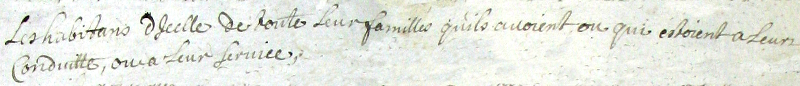 Les habitans d'Jcelle de toute Leur familles qu'ils auoient ou qui estoient a Leurs
Conduitte, ou a Leur seruice,